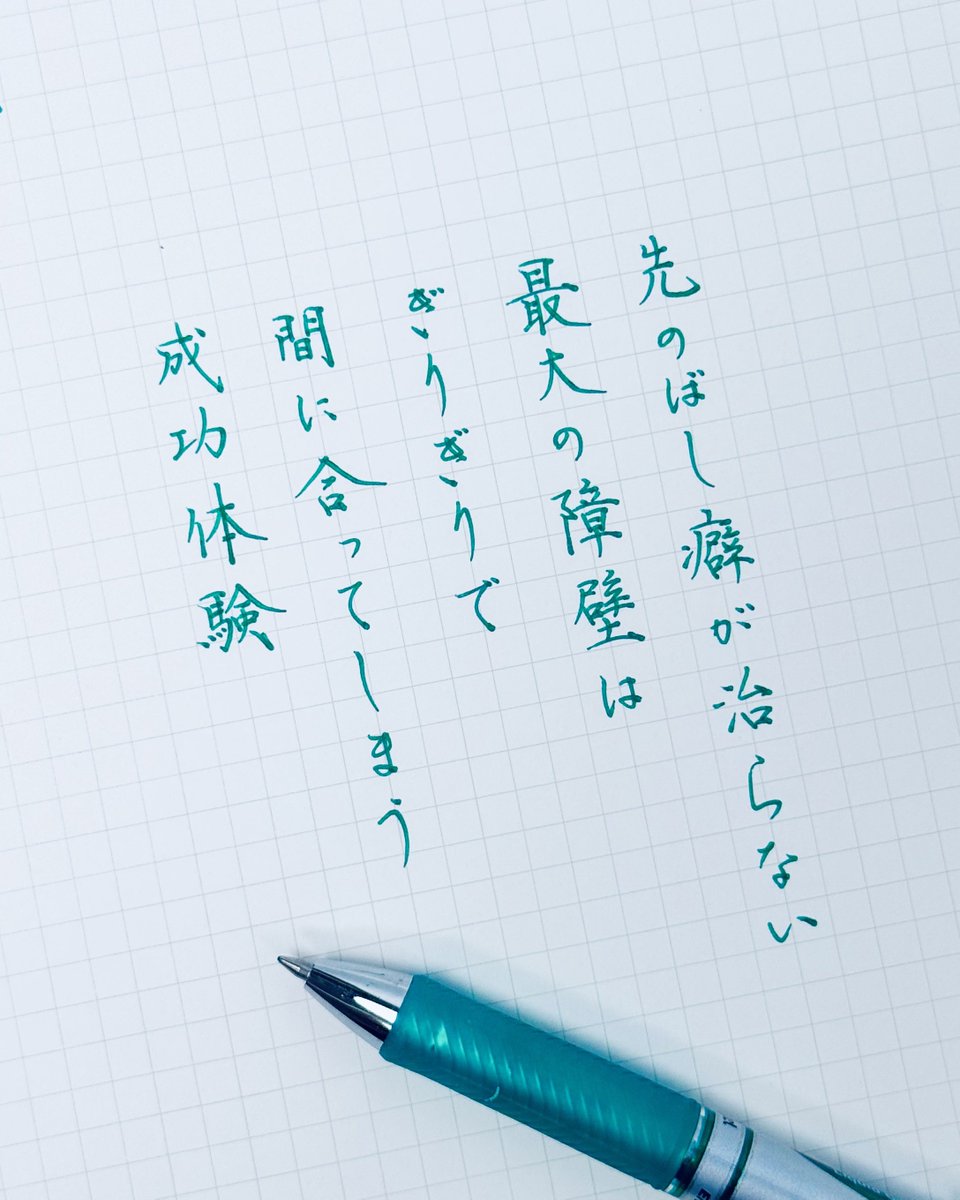 先のばし癖が治らない
最大の障壁は
ぎりぎりで
間に合ってしまう
成功体験